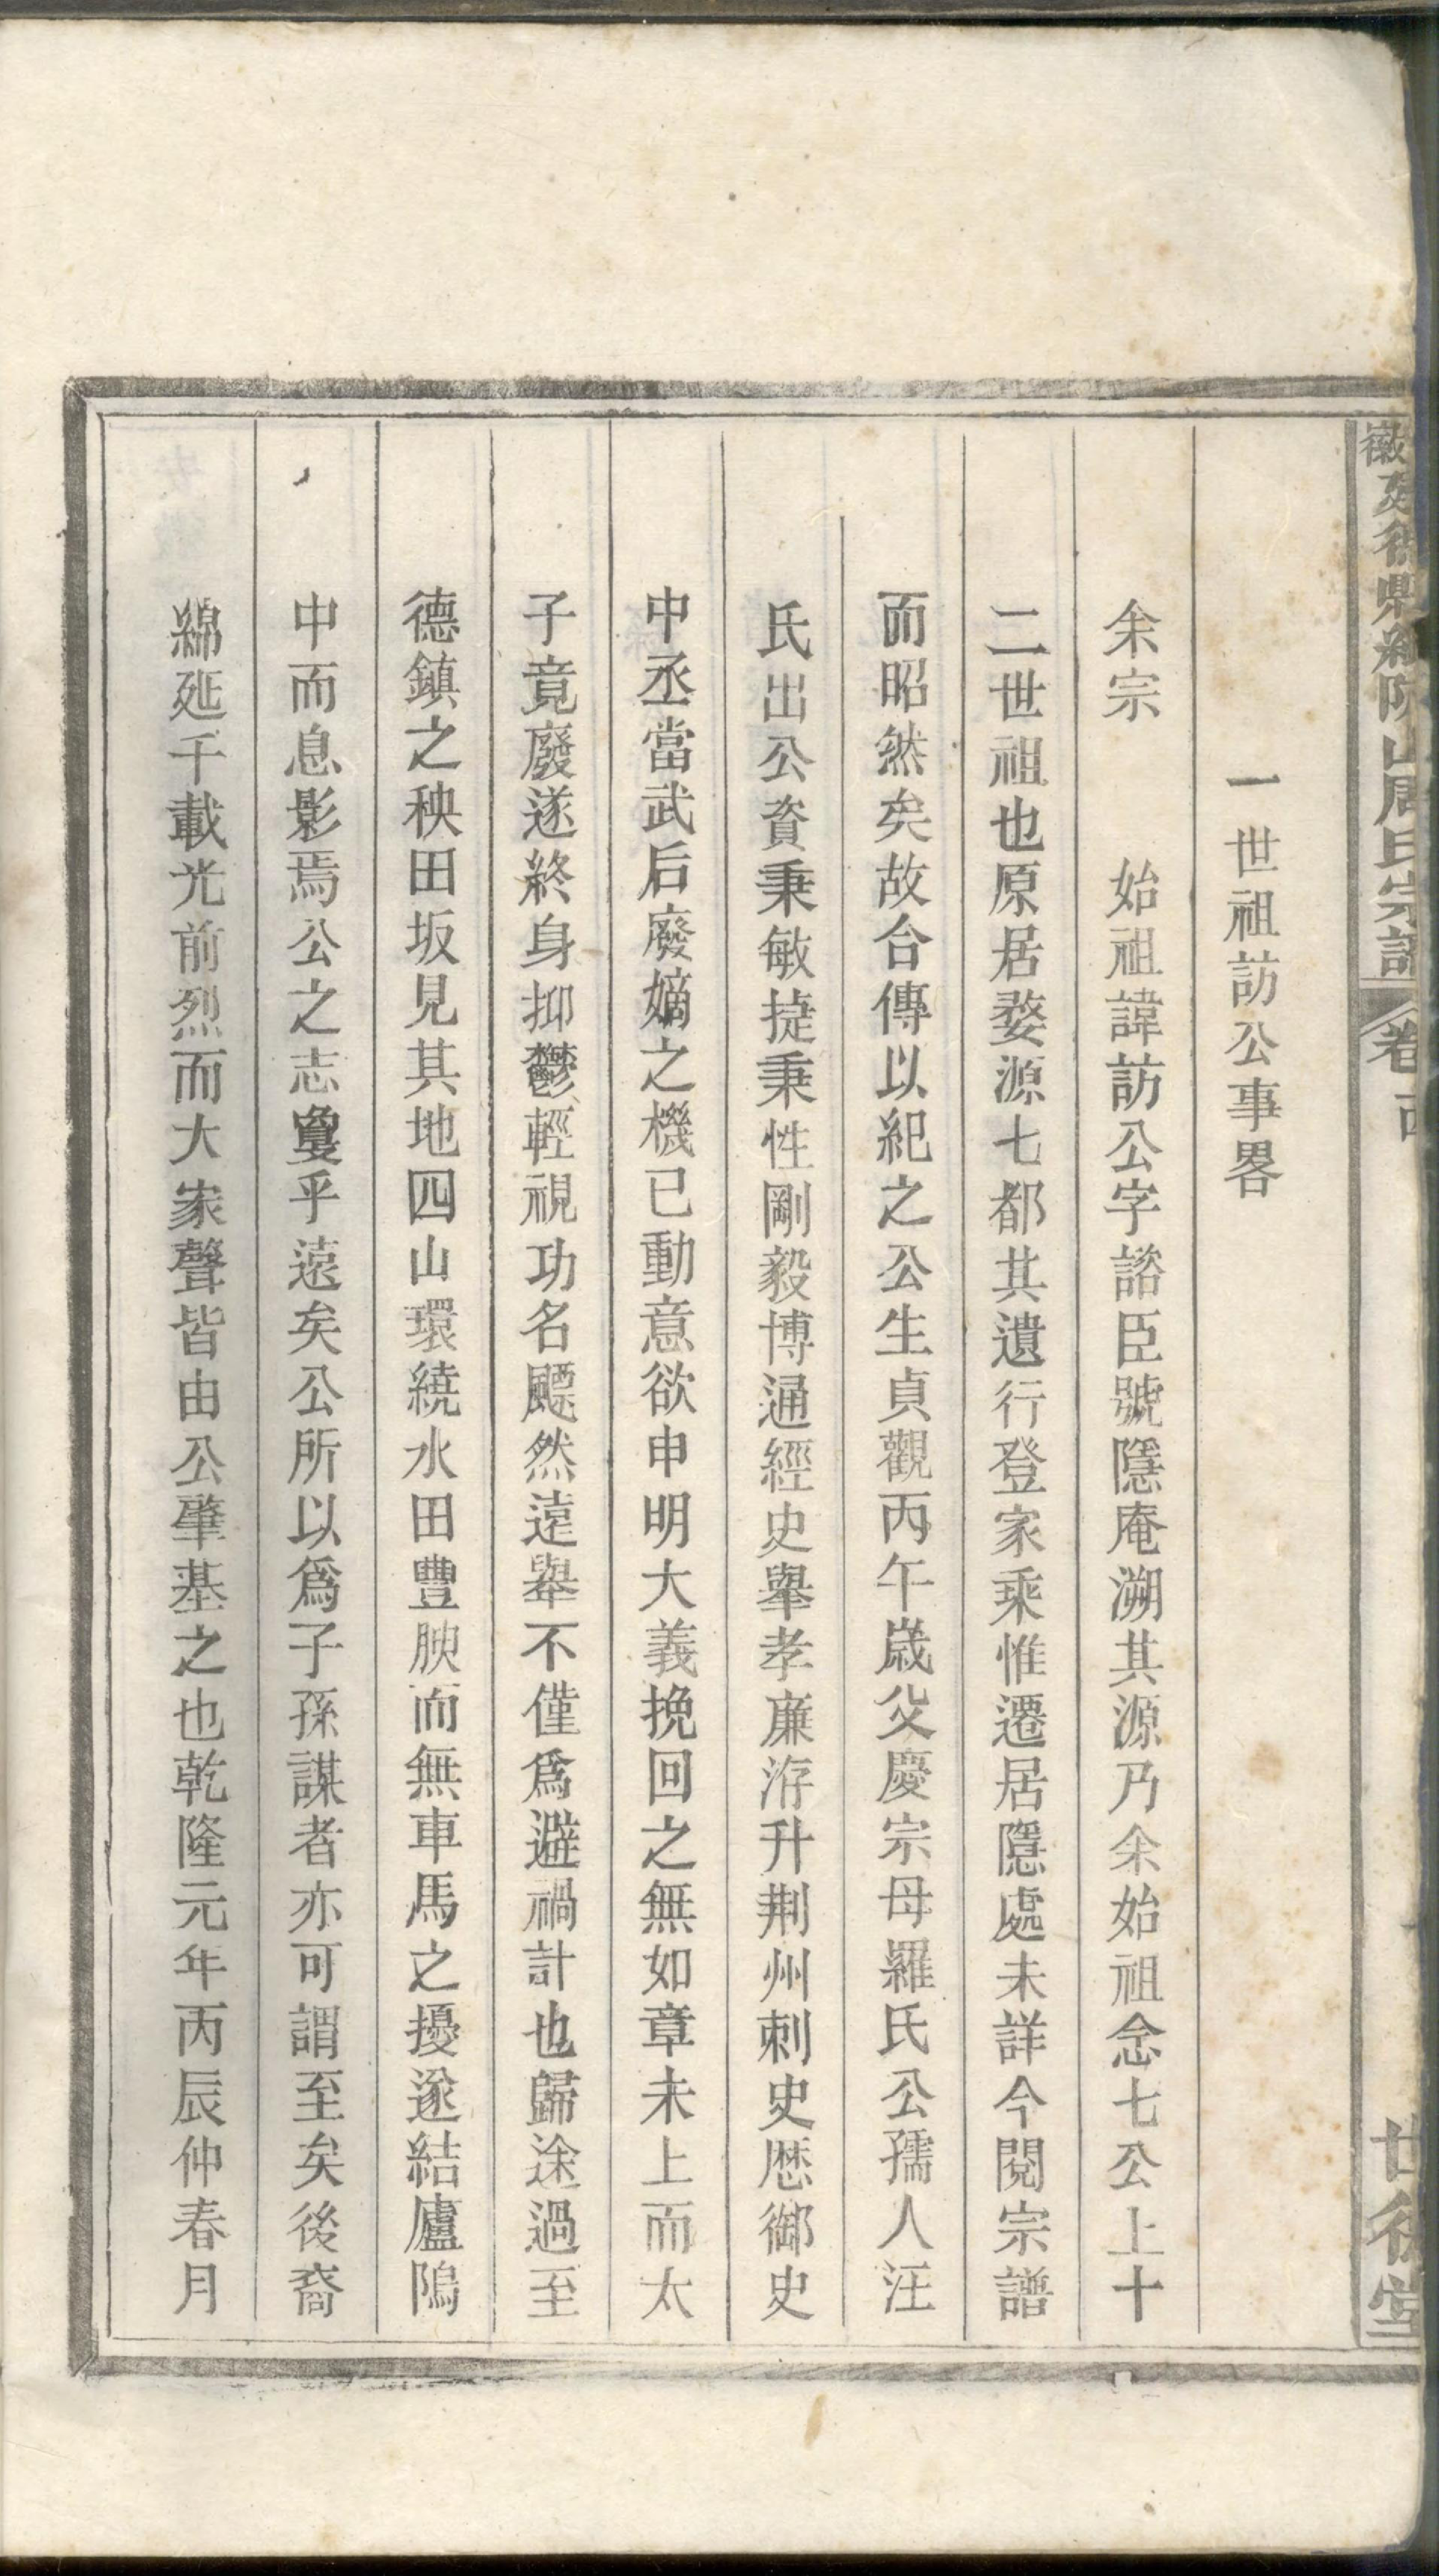 一世祖訪公事畧
余宗 始祖諱訪公字諮臣號隱庵溯其源乃余始祖念七公上十
二世祖也原居婺源七都其遺行登家乘惟遷居隱處未詳今閱宗譜
而昭然矣故合傳以紀之公生貞觀丙午歲父慶宗母羅氏公孺人汪
氏出公資秉敏捷秉性剛毅博通經史舉孝廉洊升荆州刺史歷御史
中丞當武后廢嫡之機已動意欲申明大義挽回之無如章未上而太
子竟廢遂終身抑鬱輕視功名飄然遠舉不僅爲避禍計也歸途過至
德鎮之秧田坂見其地四山環繞水田豐腴而無車馬之擾遂結廬隖
中而息影焉公之志敻乎遠矣公所以爲子孫謀者亦可謂至矣後裔
綿延千載光前烈而大家聲皆由公肇基之也乾隆元年丙辰仲春月
山周氏宗譜 卷